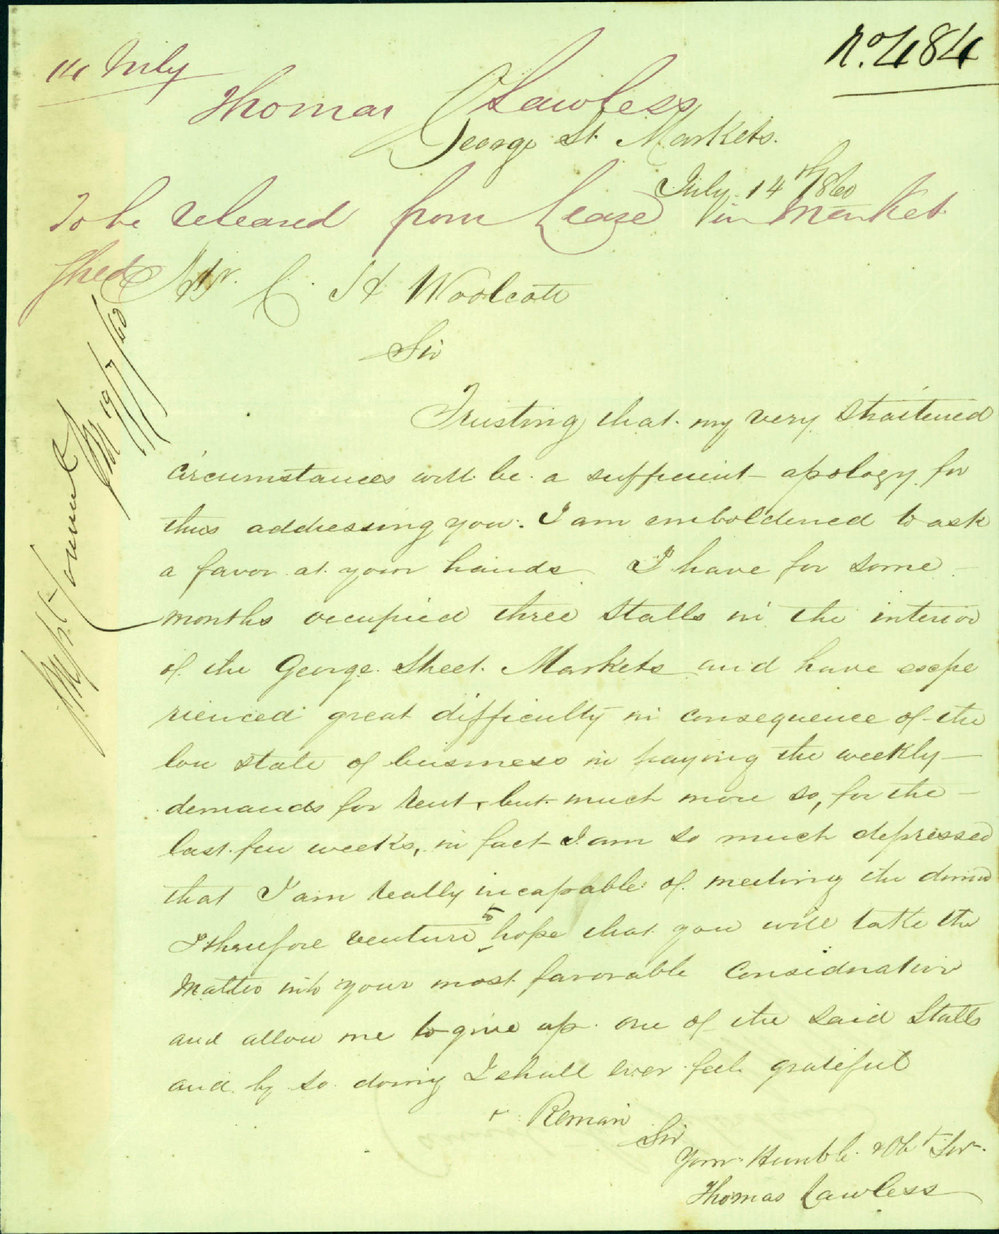 No 484
14 July
Thomas Lawless
George St. Markets.
July 14th 1860
To be released from Lease in Market
Shed
Mr. C. H Woolcott
Sir
Trusting that my very straitened
circumstances will be a sufficient apology for
thus addressing you. I am emboldened to ask
a favor at your hands I have for some
months occupied three Stalls in the interior
of the George Street Markets and have expe
rienced great difficulty in consequence of the
low state of business in paying the weekly
demands for rent, but much more so, for the
last few weeks, in fact I am so much depressed
that I am really incapable of meeting the
I therefore venture to hope that you will take the
Matter into your most favorable Consideration
and allow me to give up one of the said Stalls
and by so doing I shall ever feel grateful
Remain
Sir
Your Humble Obt Sr.
Thomas Lawless
19/7/60